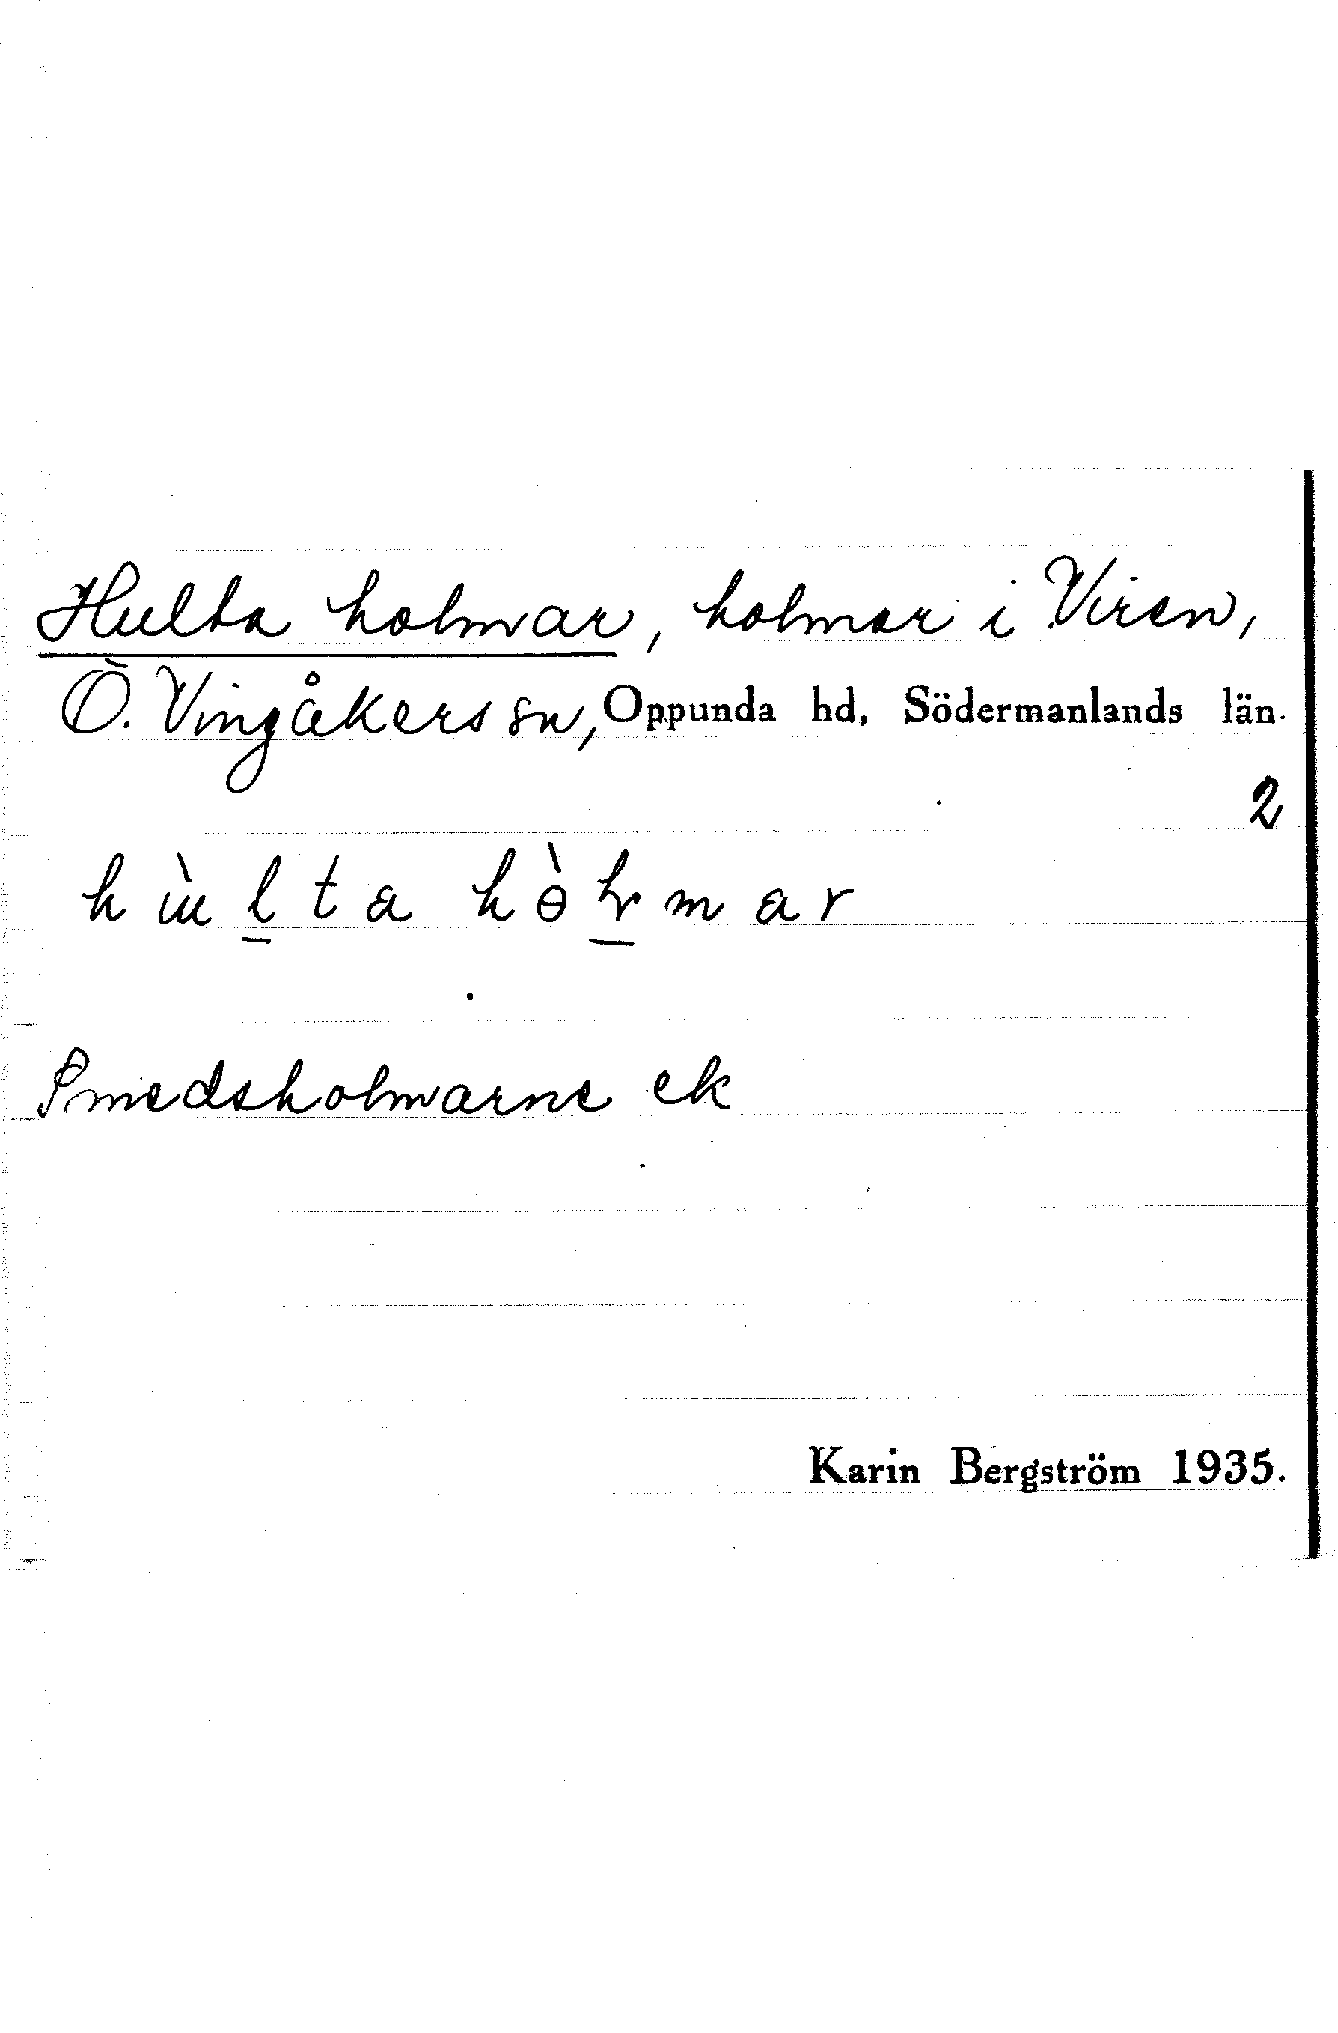 Hulta holmar, holmar i Viren,
Ö. Vingåkers sn, Oppunda hd, Södermanlands län.
2
h ù l t a h ò l m a r
Smedsholmarne ek
Karin Bergström 1935.